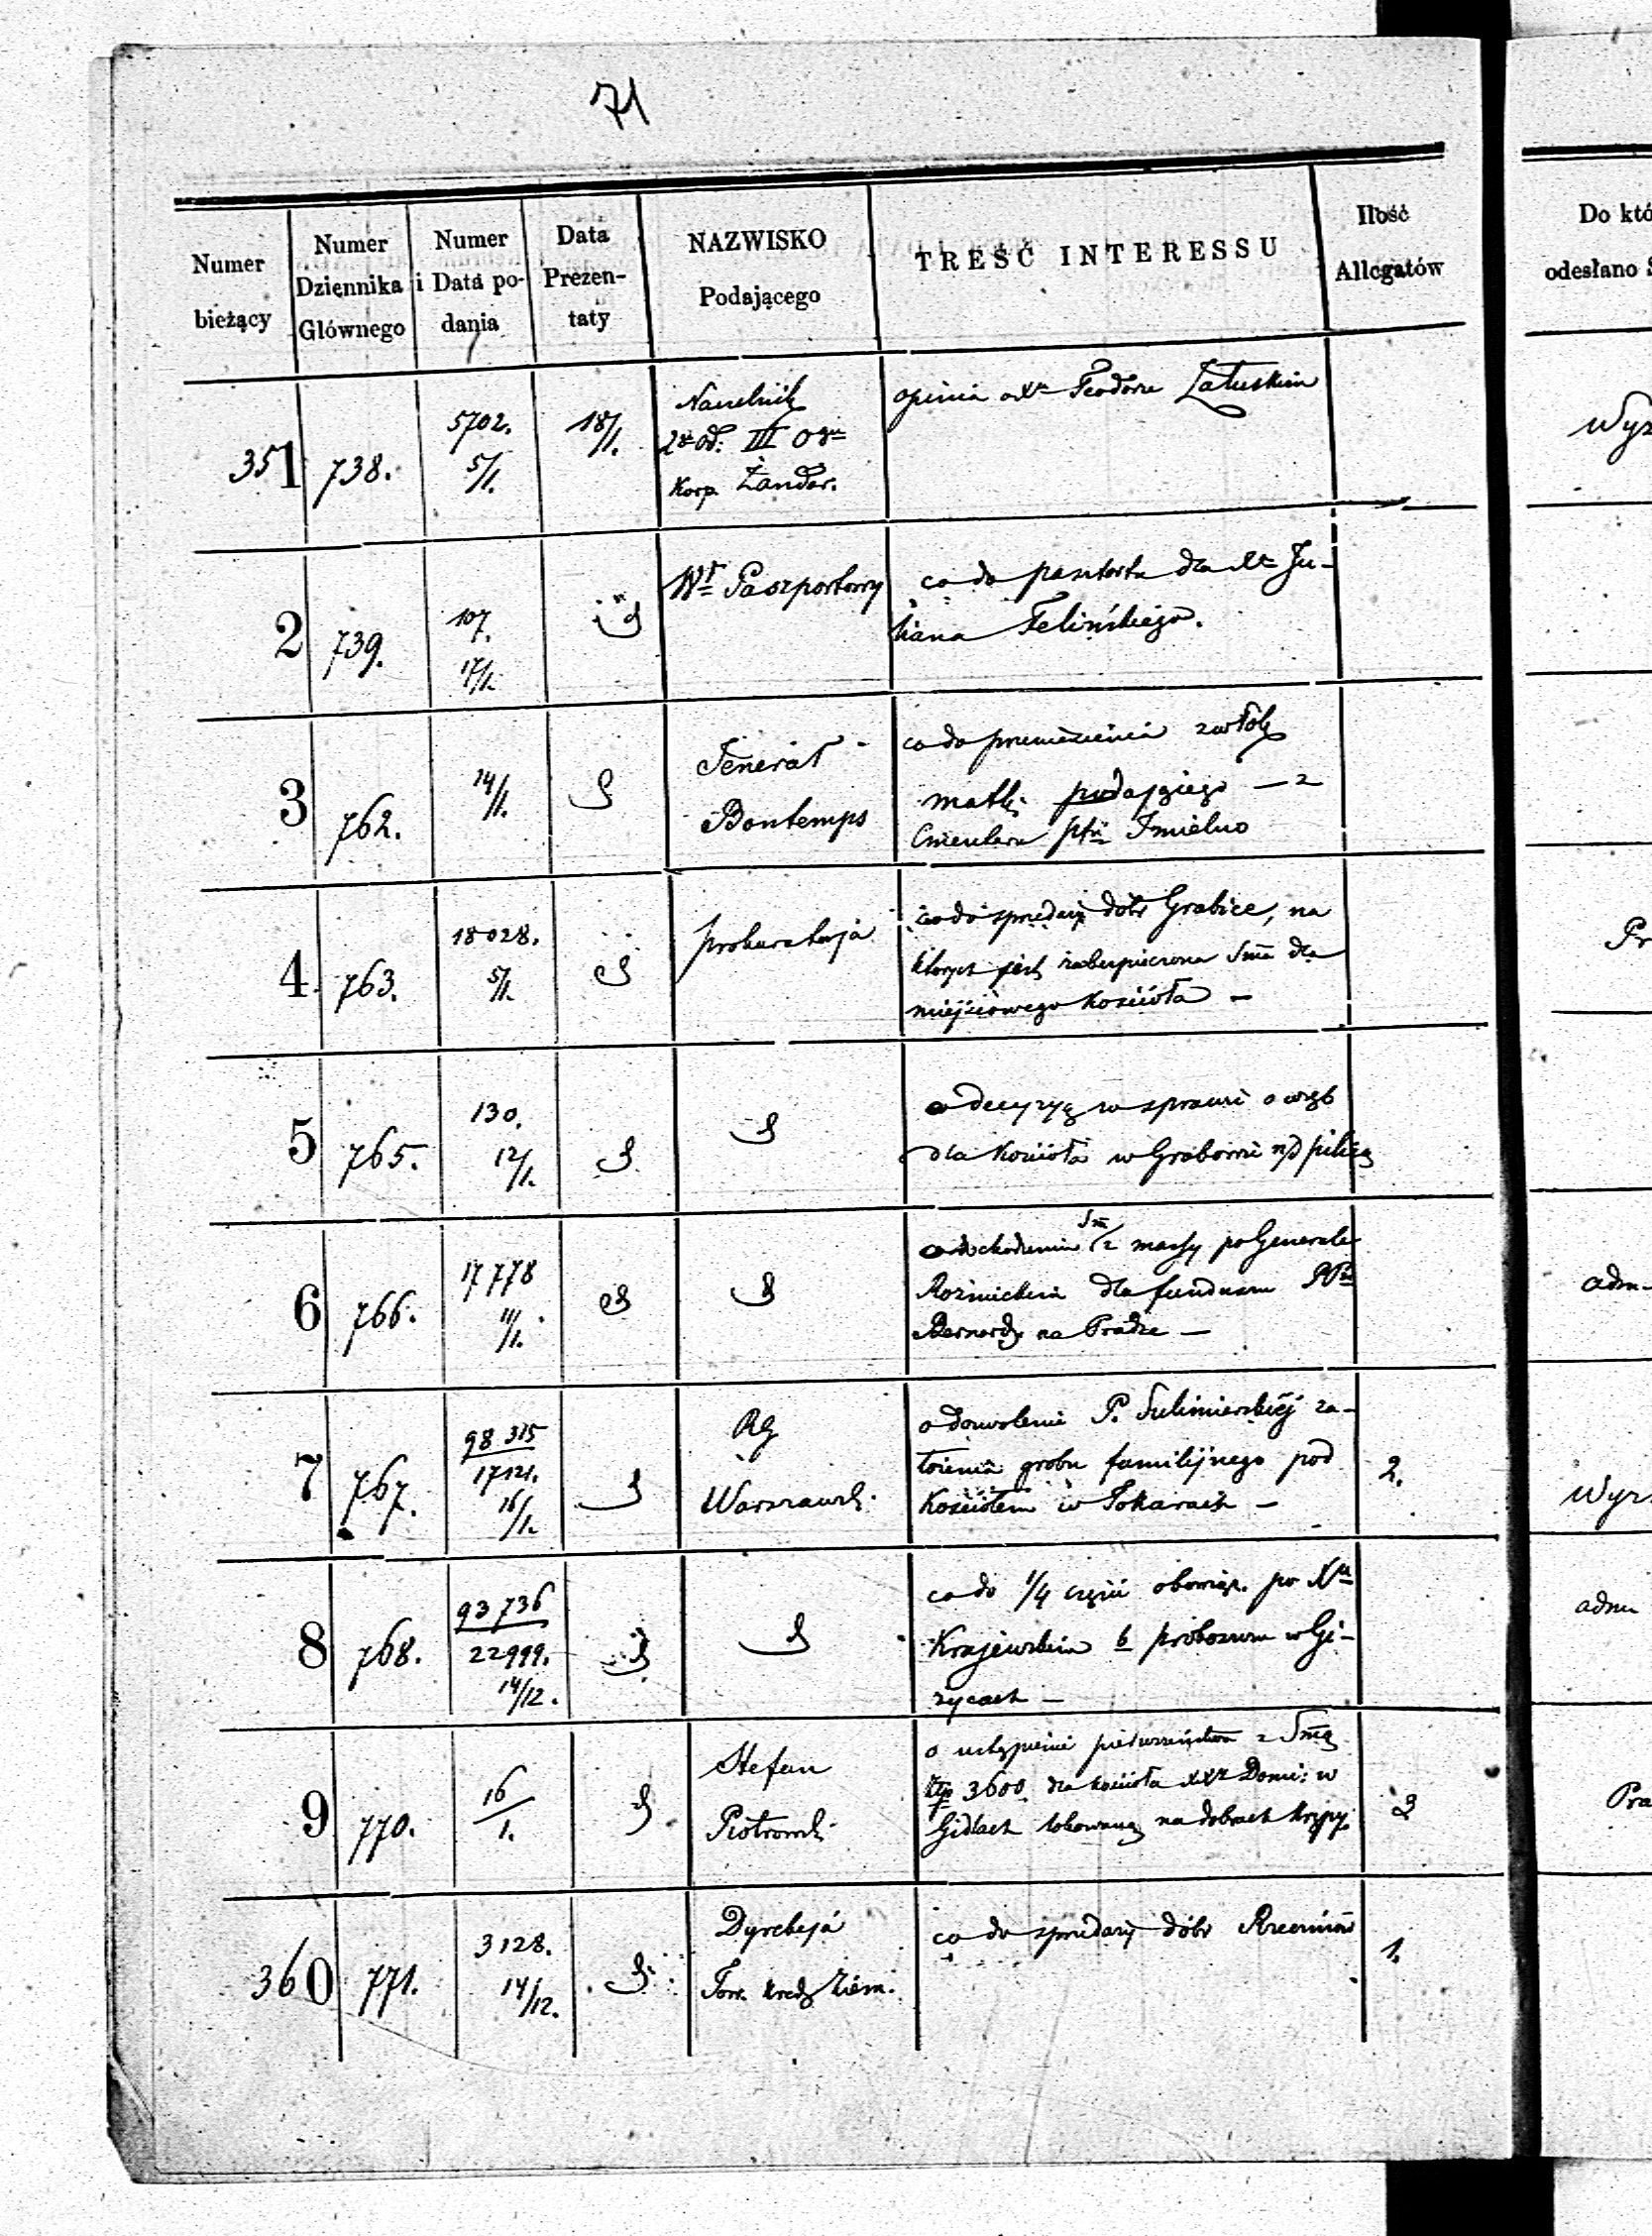 71
Numer bieżący | Numer Dziennika Głównego | Numer i Data podania | Data Prezentaty | NAZWISKO Podającego | TREŚĆ INTERESSU | Ilość Allegatów | Do któ
odesłano S
351 | 738. | 5702. 5/1. | 18/1. | Naczelnik
2go od. III Ogu
Korp. Żandar.
opinia o Xu Teodorze Załuskim
Wyz
2 | 739. | 107. 17/1. | Wł Paszportowy
co do paszportu dla Xa Ju-
liana Felińskiego.
3 | 762. | 14/1. | Jenerał
Bontemps
co do przeniesienia zwłok
matki podającego — z
Cmentarza pfii Imielno
4 | 763. | 18028. 5/1. | Prokuratorja
co do sprzedaży dóbr Grabice, na
których jest zabezpieczona Sma dla
miejscowego Kościoła —
Pr
5 | 765. | 130. 12/1.
o decyzyę w sprawie o wrąb
dla Kościoła w Grabowie n/d pilicą
6 | 766. | 17778 11/1.
Sm z massy po Generale
Rożnieckim dla funduszu
Bernard. na Pradze —
adm-
7 | 767. | 98315 17121. 16/1. | RG
Warszawsk. | 2.
o dozwolenie P. Sulimierskiéj za-
łożenia grobu familijnego pod
Kościołem w Tokarach —
Wyz
8 | 768. | 93736 22999. 14/12.
co do 1/4 części obowiąz. po Xu
Krajewskim b proboszczu w Gi-
życach —
adm
9 | 770. | 16/1. | Stefan
Piotrowski | 3
o ustąpienie pierwszeństwa z Smą
Złp 3600 dla kościoła XXy Domi: w
Gidlach lokowaną na dobrach Krzpy.
Pra
360 | 771. | 3128. 14/12. | Dyrekcja
Tow. Kred. Ziem. | 1.
co do sprzedaży dóbr